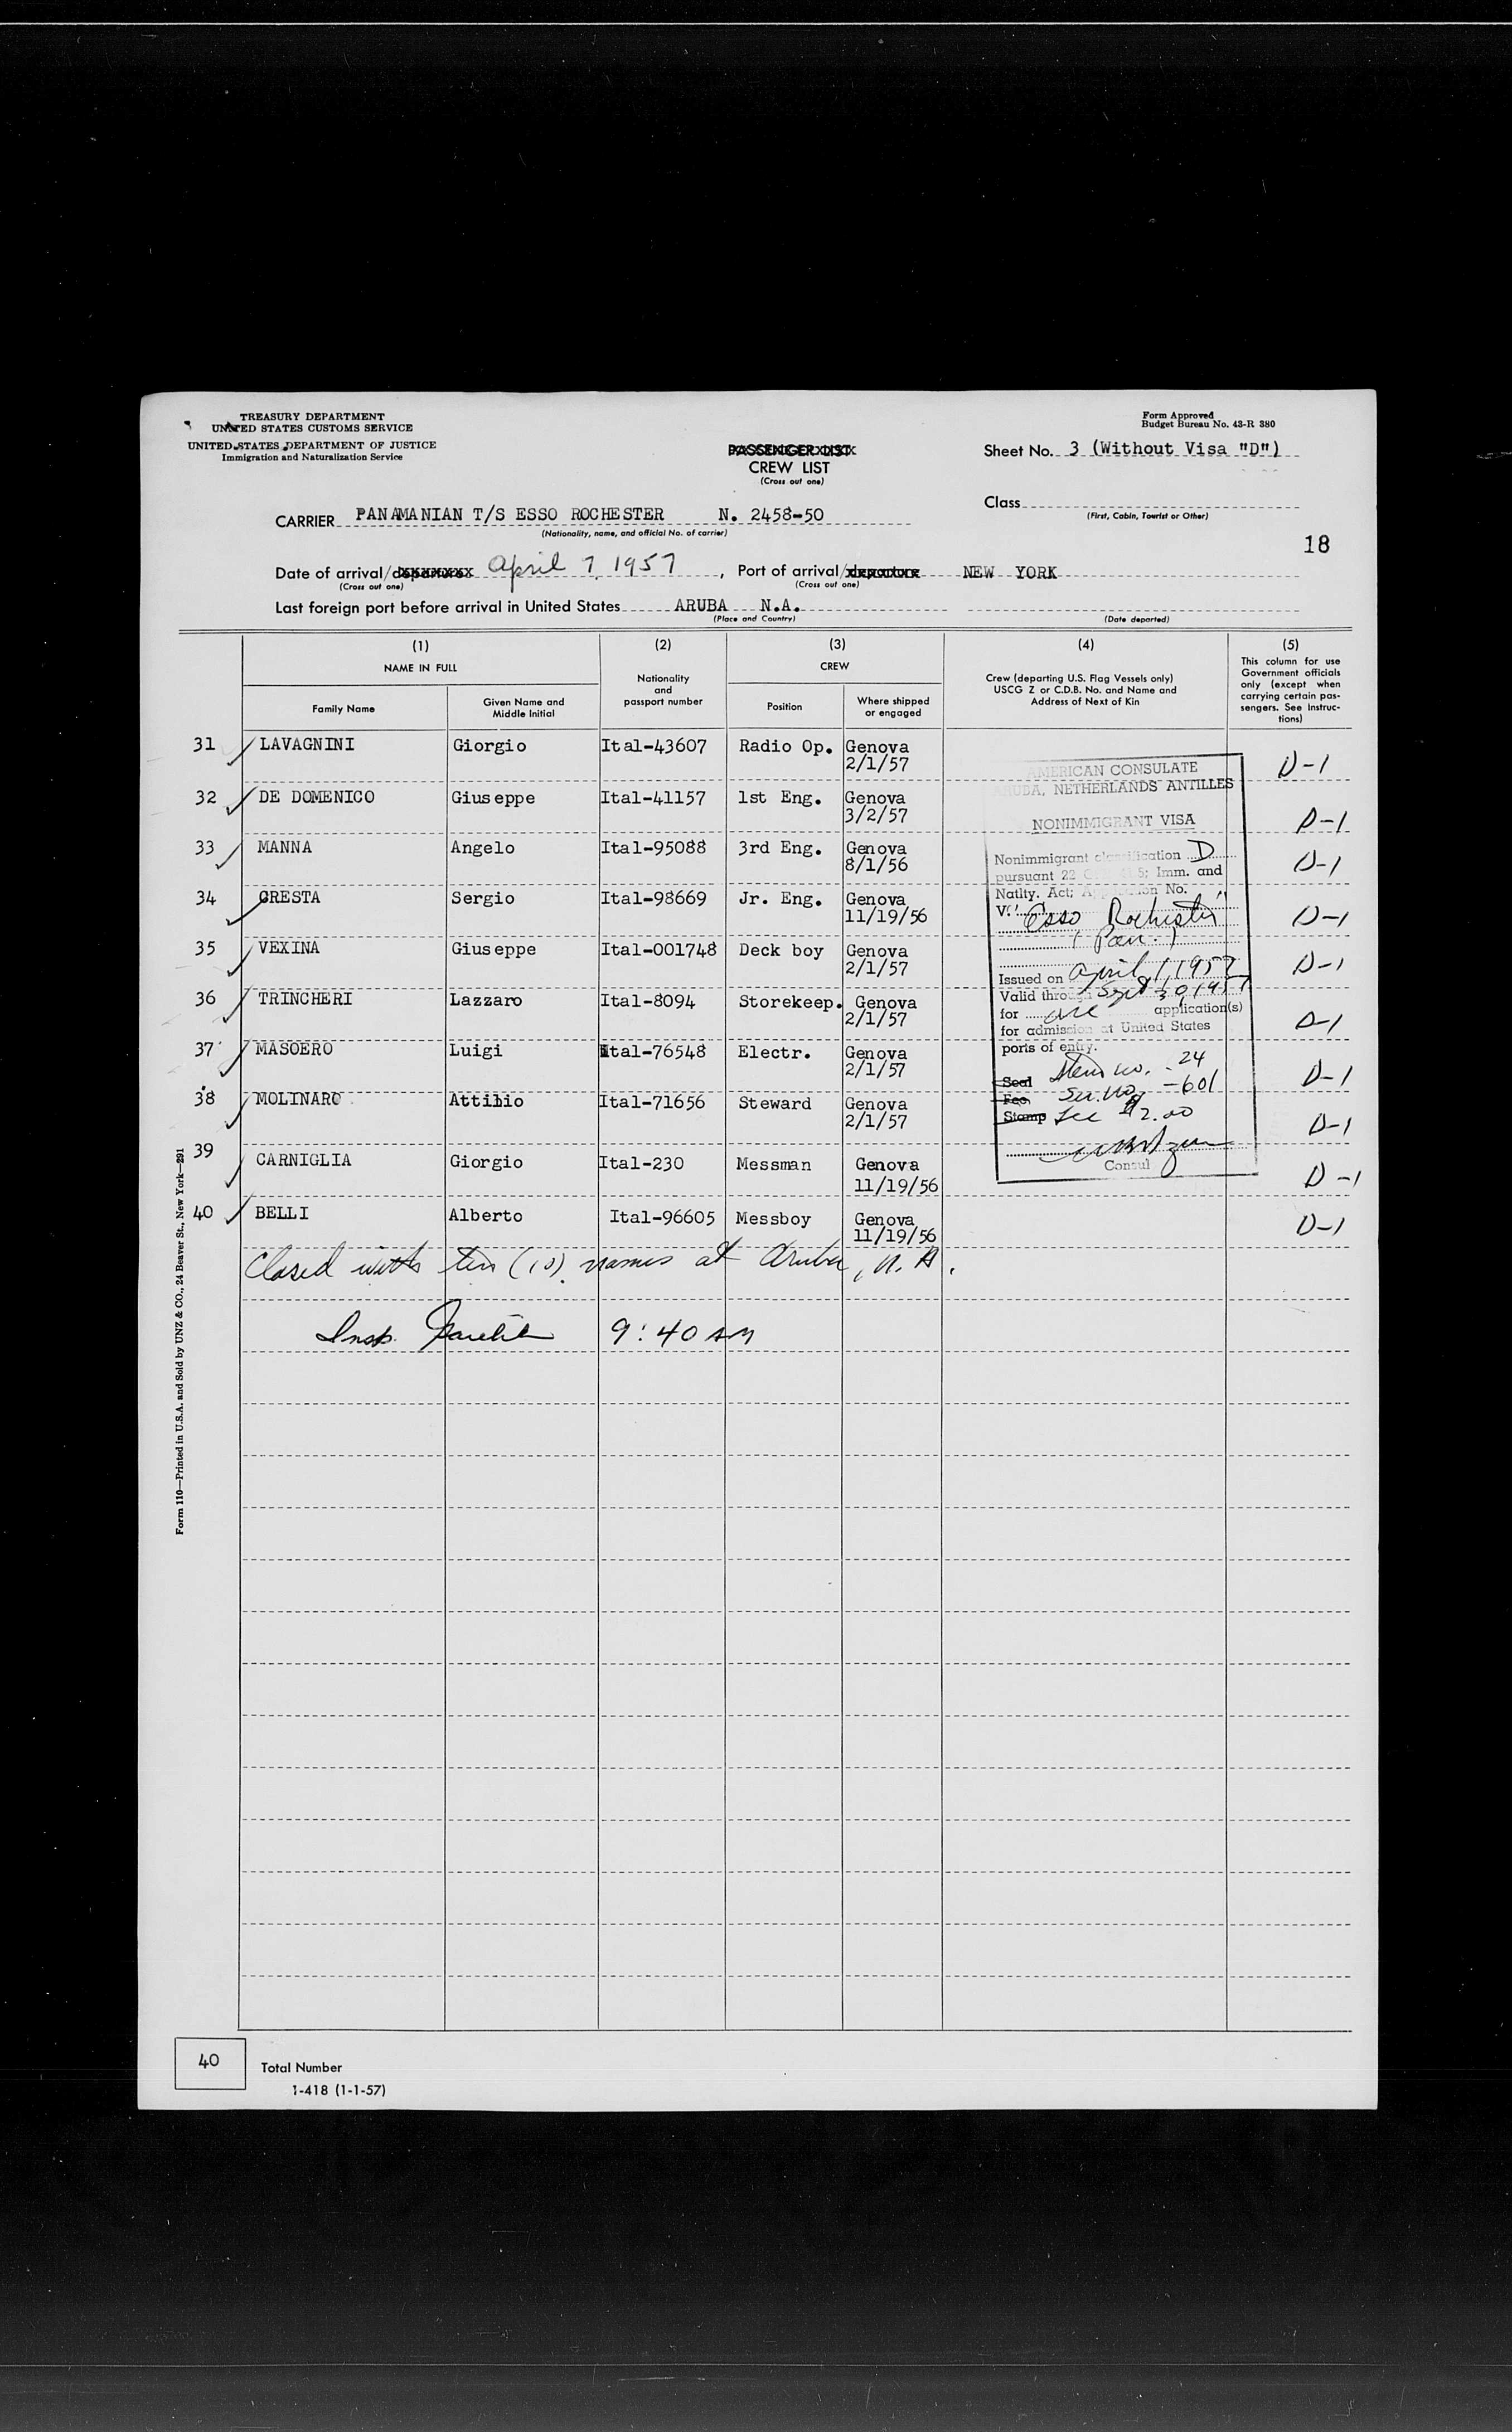 TREASURY DEPARTMENT
UNITED STATES CUSTOMS SERVICE
UNITED STATES DEPARTMENT OF JUSTICE
Immigration and Naturalization Service
Form Approved
Budget Bureau No. 43-R 380
PASSENGER LIST
CREW LIST
(Cross out one)
Sheet No. 3 (Without Visa "D")
CARRIER PANAMANIAN T/S ESSO ROCHESTER N. 2458-50
(Nationality, name, and official No. of carrier)
Class
(First, Cabin, Tourist or Other)
18
Date of arrival/departure April 7, 1957, Port of arrival/departure NEW YORK
(Cross out one) (Cross out one)
Last foreign port before arrival in United States ARUBA N.A.
(Place and Country) (Date departed)
(1) (2) (3) (4) (5)
NAME IN FULL
Family Name
Given Name and Middle Initial
Nationality and passport number
CREW
Position
Where shipped or engaged
Crew (departing U.S. Flag Vessels only)
USCG Z or C.D.B. No. and Name and
Address of Next of Kin
This column for use
Government officials
only (except when
carrying certain pas-
sengers. See Instruc-
tions)
31 LAVAGNINI Giorgio Ital-43607 Radio Op. Genova 2/1/57 D-1
32 DE DOMENICO Giuseppe Ital-41157 1st Eng. Genova 3/2/57 D-1
33 MANNA Angelo Ital-95088 3rd Eng. Genova 8/1/56 D-1
34 CRESTA Sergio Ital-98669 Jr. Eng. Genova 11/19/56 D-1
35 VEXINA Giuseppe Ital-001748 Deck boy Genova 2/1/57 D-1
36 TRINCHERI Lazzaro Ital-8094 Storekeep. Genova 2/1/57 D-1
37 MASOERO Luigi Ital-76548 Electr. Genova 2/1/57 D-1
38 MOLINARO Attilio Ital-71656 Steward Genova 2/1/57 D-1
39 CARNIGLIA Giorgio Ital-230 Messman Genova 11/19/56 D-1
40 BELLI Alberto Ital-96605 Messboy Genova 11/19/56 D-1
AMERICAN CONSULATE
ARUBA, NETHERLANDS ANTILLES
NONIMMIGRANT VISA
Nonimmigrant classification D
pursuant 22 Imm. and
Natlty. Act; Application No.
Esso Rochester
(Pan.)
Issued on April 1, 1957
Valid through Sept 30, 1957
for one application(s)
for admission at United States
ports of entry.
Seal Item no. - 24
Fee Ser. no. - 601
Stamp Fee $2.00
Consul
Closed with ten (10) names at Aruba, N. A.
Insp. 9:40 AM
Form 110—Printed in U.S.A. and Sold by UNZ & CO., 24 Beaver St., New York—291
40 Total Number
1-418 (1-1-57)